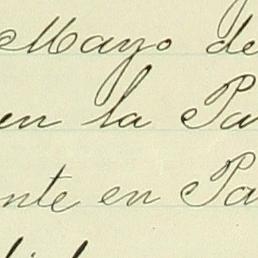 Mayo de
en la Pa
nte en Pa